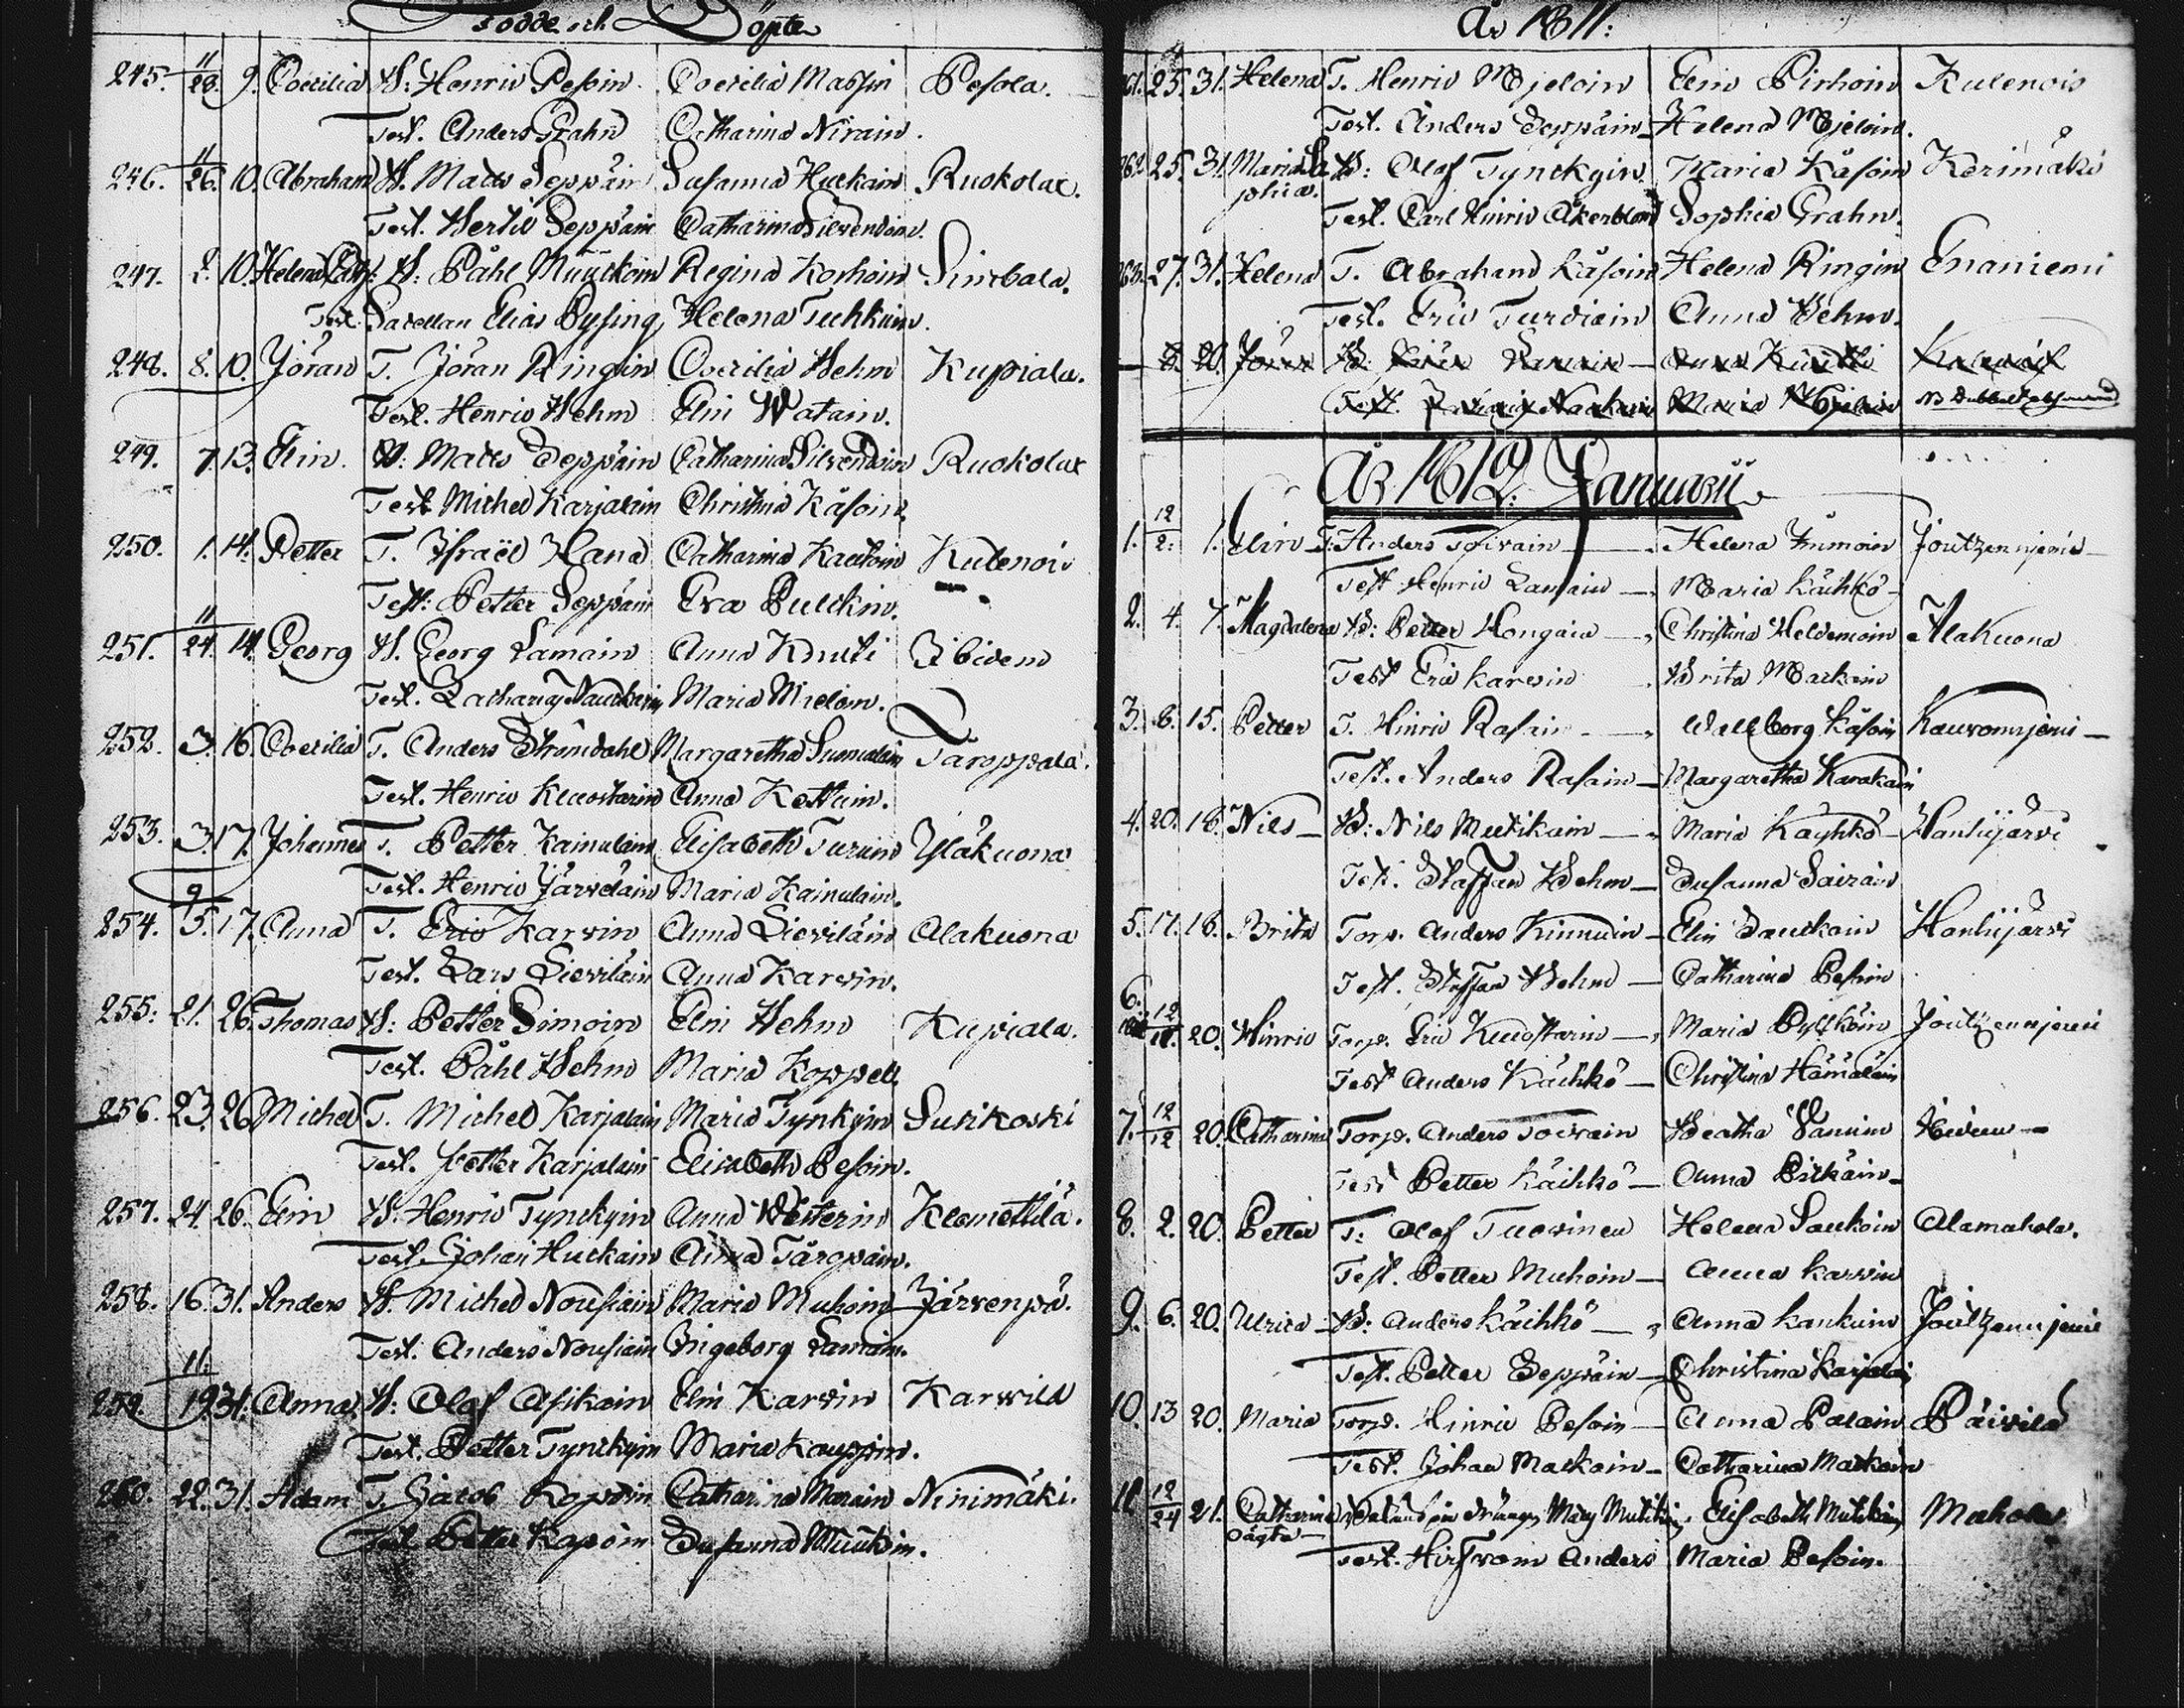 Födde och Döpte
245. 11/28. 9. Coecilia B: Henric Pesoin Coecilia Massin Pesola.
Test. Anders Grahn Catharina Nirain.
246. 11/26. 10. Abraham B. Matts Seppäin Susanna Huckain Ruokolax.
Test. Bertil Seppäin Catharina Silvendoin.
247. 2. 10. Helena B: Påhl Muukoin Regina Korhoin
Test. Sacellan Elias Pysing, Helena Tuhkuin.
248. 8. 10. Jöran T. Jöran Ringin Coecilia Behm Kupiala.
Test. Henric Behm Elin Watain.
249. 7. 13. Elin. B: Matts Seppäin Catharina Silvendoin Ruokolax
Test Michel Karjalain Christina Käsoin.
250. 1. 14. Petter T. Israël Hana Catharina Kautoin Kulenoi
Test: Petter Seppäin Eva Pulckin.
251. 11/24. 14. Georg B. Georg Lamain Anna Knuti Ibidem
Test. Zachary Nauckarin Maria Mieloin.
252. 3. 16. Coecilia T. Anders Strömdahl Margaretha Sumulain Taroppala.
Test. Henric Kuostarin Anna Kettuin.
253. 3. 17. Johannes T. Petter Kainulain Elisabeth Turuin Yläkuona
Test. Henric Järveläin Maria Kainulain.
254. 9/5. 17. Anna T. Eric Karvin Anna Lieviläin Alakuona
Test. Lars Lieviläin Anna Karvin.
255. 21. 26. Thomas B: Petter Simoin Elin Behm Kupiala.
Test. Påhl Behm Maria Koppell
256. 23. 26. Michel T. Michel Karjalain Maria Tynckyin Surikoski
Test. Petter Karjalain Elisabeth Pesoin.
257. 24. 26. Elin B. Henric Tynckyin Anna Westerin Klemettilä.
Test. Johan Huckain Anna Täropäin.
258. 16. 31. Anders B. Michel Nousiain Maria Muhoin Järvenpä.
Test. Anders Nousiain Ingeborg Lamain.
259. 11/19. 31. Anna B: Olof Asikain Elin Karvin Karvila
Test. Petter Tynckyin Maria Kauppin.
260. 22. 31. Adam T. Jacob Kopoin Catharina Marain Ninimäki.
Test Petter Kapoin Susanna Muukin.
År 1811:
25. 31. Helena T. Henric Mjeloin Elin Pirhoin Kulenois
Test. Anders Seppäin Helena Mjeloin.
25. 31. Maria Sophia. B: Olof Tynckyin Maria Käsoin Kerimäki
Test. Carl Hinric Åkerblom Sophia Grahn.
27. 31. Helena T. Abraham Käsoin Helena Ringin Enaniemi
Test. Eric Turviain Anna Behm.
År 1812: Januarii
1. 12/2. 1. Elin T: Anders Toivain Helena Immoin Joutzennjemi
Test Henric Lamain Maria Käihkö
2. 4. 7. Magdalena B: Petter Hongain Christina Heldemoin Alakuona
Test Eric Karvin Brita Mackoin
3. 6. 15. Petter T. Hinric Rasain Wallborg Käsoin Kauvonnjemi
Test. Anders Rasain Margaretha Karakain
4. 20. 18. Nils B: Nils Mutikain Maria Kayhkö Hanhijärvi
Test. Staffan Behm Susanna Sairain
5. 17. 18. Brita Torp. Anders Kinnuin Elin Sauckoin Hanhijärvi
Test. Staffan Behm Catharina Pesoin
6. 12/18. 20. Hinric Torp. Eric Kuostarin Maria Pylkköin Joutzennjemi
Test Anders Käihkö Christina Hämäläin
7. 12/12 20. Catharina Torp. Anders Toivain Beatha Vanuin Ibidem
Test Petter Käihkö Anna Pitkäin
8. 2. 20. Petter T: Olof Tuovinen Helena Saukoin Alamahola.
Test. Petter Muhoin Anna Karvin
9. 6. 20. Ulrica B: Anders Käihkö Anna Kankuin Joutzennjemi
Test. Petter Seppäin Christina Karjalai
10. 13 20. Maria Torp. Hinric Pesoin Anna Palain Päivilä
Test. Johan Mackoin Catharina Mackoin
11 12/24 21. Catharina oägta Elisabeth Mutikain Muhola
Test. Anders Maria Pesoin.